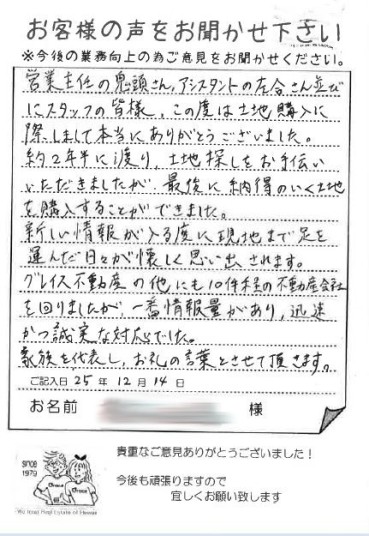 お客様の声をお聞かせ下さい
※今後の業務向上の為ご意見をお聞かせください。
営業主任の鬼頭さん,アシスタントの左合さん並び
にスタッフの皆様,この度は土地購入に
際しまして本当にありがとうございました。
約2年半に渡り,土地探しをお手伝い
いただきましたが,最後に納得のいく土地
を購入することができました。
新しい情報が入る度に現地まで足を
運んだ日々が懐しく思い出されます。
グレイス不動産の他にも10件程の不動産会社
を回りましたが,一番情報量があり,迅速
かつ誠実な対応でした。
家族を代表し,お礼の言葉とさせて頂きます。
ご記入日 25 年 12 月 14 日
お名前 様
貴重なご意見ありがとうございました！
今後も頑張りますので
宜しくお願い致します
SINCE
1979